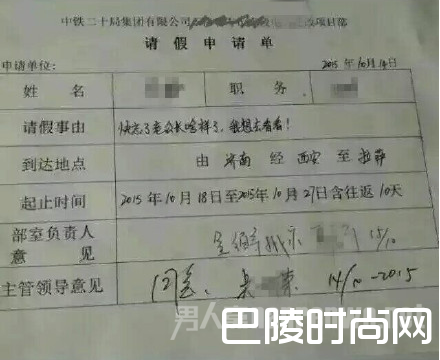 中铁二十局集团有限公司 改项目部
请假申请单
申请单位: 2015年10月14日
姓名 职务
请假事由 快忘了老公长啥样了,我想去看看!
到达地点 由 济南 经 西安 至 拉萨
起止时间 2015年10月18日至2015年10月27日含往返10天
部室负责人 15/10
意见
主管领导意见 同意、 14/10-2015
男人
巴陵时尚网